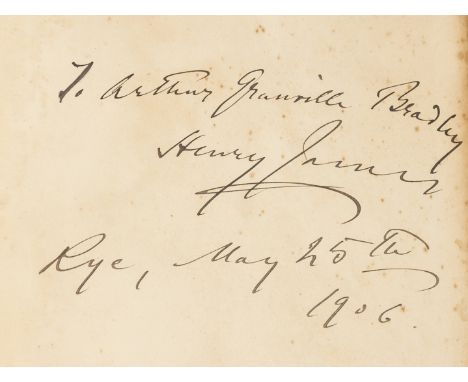 To Arthur Granville Bradley
Henry James
Rye, May 25th
1906.